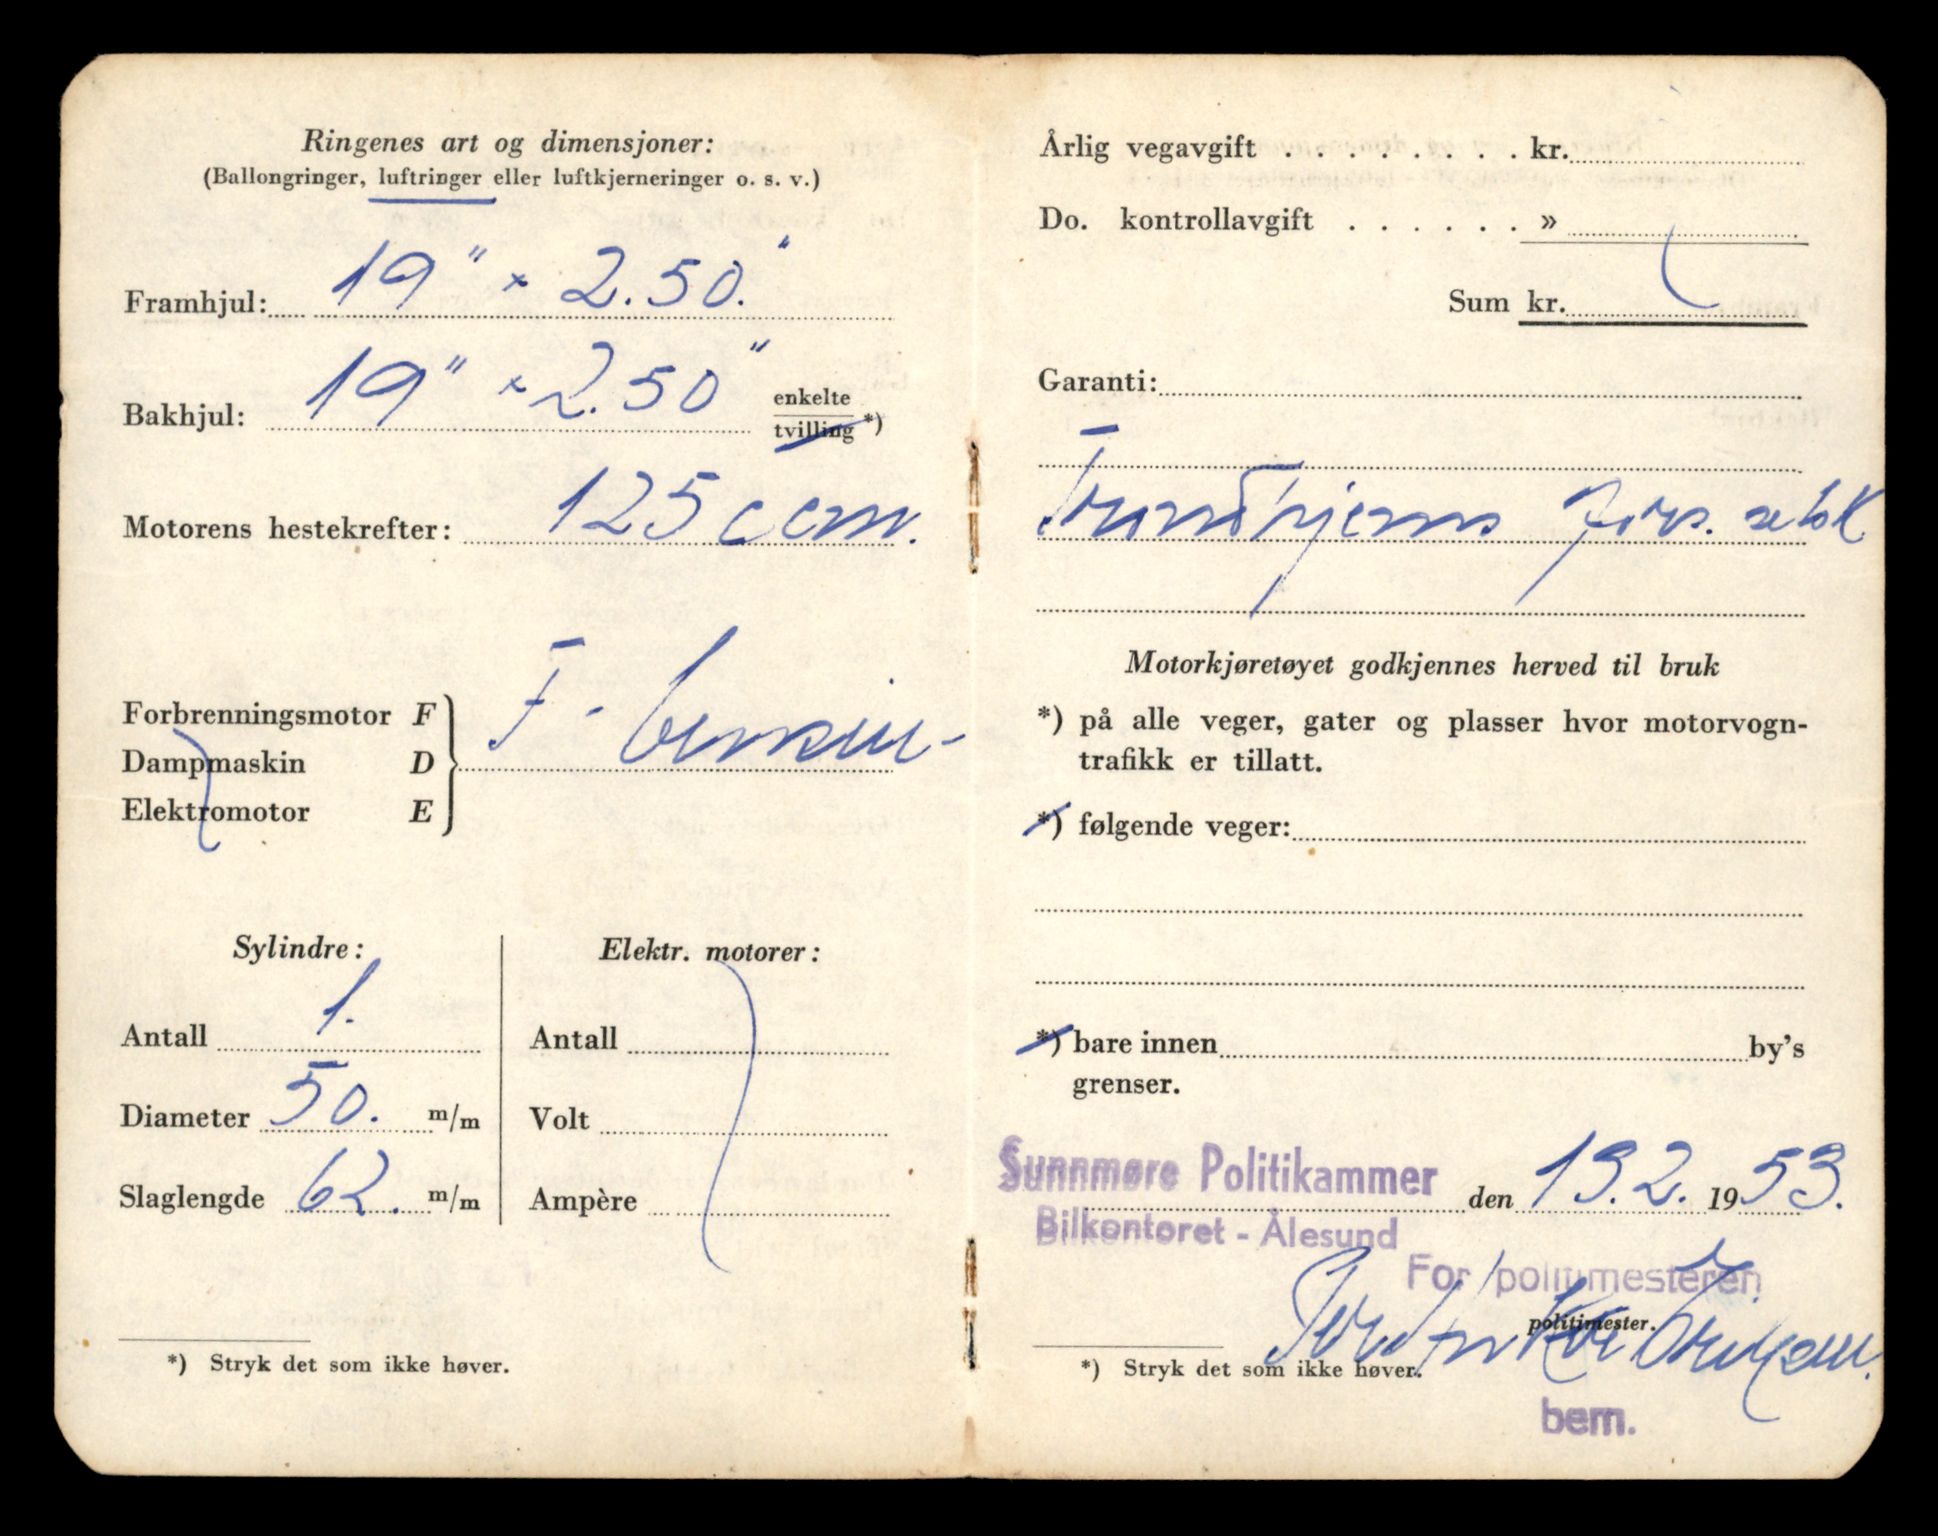 Ringenes art og dimensjoner:
(Ballongringer, luftringer eller luftkjerneringer o. s. v.)
Framhjul: 19" × 2.50."
Bakhjul: 19" × 2.50" enkelte
tvilling *)
Motorens hestekrefter: 125 ccm.
Forbrenningsmotor F
Dampmaskin D F - bensin -
Elektromotor E
Sylindre:
Antall 1.
Diameter 50. m/m
Slaglengde 62. m/m
Elektr. motorer:
Antall
Volt
Ampère
*) Stryk det som ikke høver.
Årlig vegavgift . . . . . . . . kr.
Do. kontrollavgift . . . . . . »
Sum kr.
Garanti:
Trondhjems fors. selsk
Motorkjøretøyet godkjennes herved til bruk
*) på alle veger, gater og plasser hvor motorvogn-
trafikk er tillatt.
*) følgende veger:
*) bare innen by's
grenser.
Sunnmøre Politikammer den 13.2. 1953.
Bilkontoret - Ålesund
For politimesteren
politimester.
*) Stryk det som ikke høver.
bem.